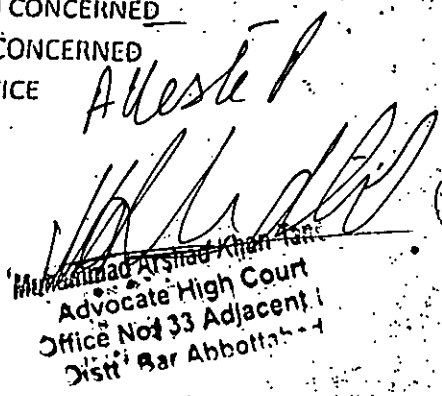 CONCERNED
CONCERNED
ICE
Attested
Muhammad Arshad Khan Tano
Advocate High Court
Office No# 33 Adjacent
Distt Bar Abbottabad